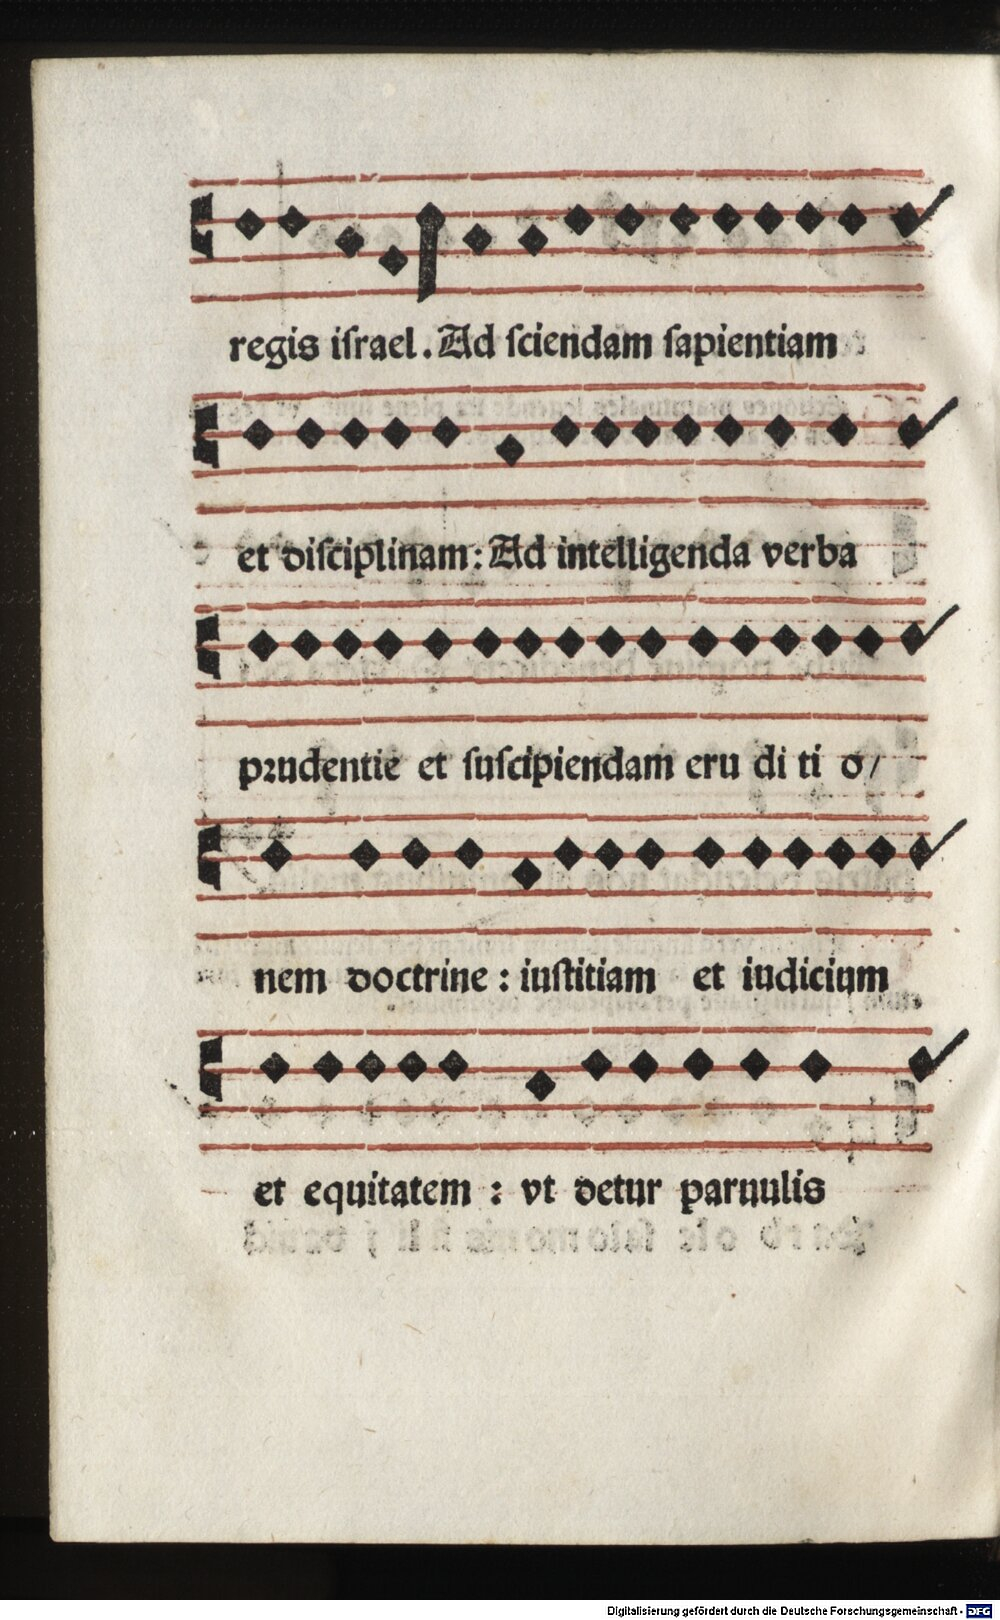 regis iſrael. Ad ſciendam ſapientiam
et diſciplinam: Ad intelligenda verba
prudentie et ſuſcipiendam eru di ti o/
nem doctrine : iuſtitiam et iudicium
et equitatem : vt detur paruulis
Digitalisierung gefördert durch die Deutsche Forschungsgemeinschaft - DFG